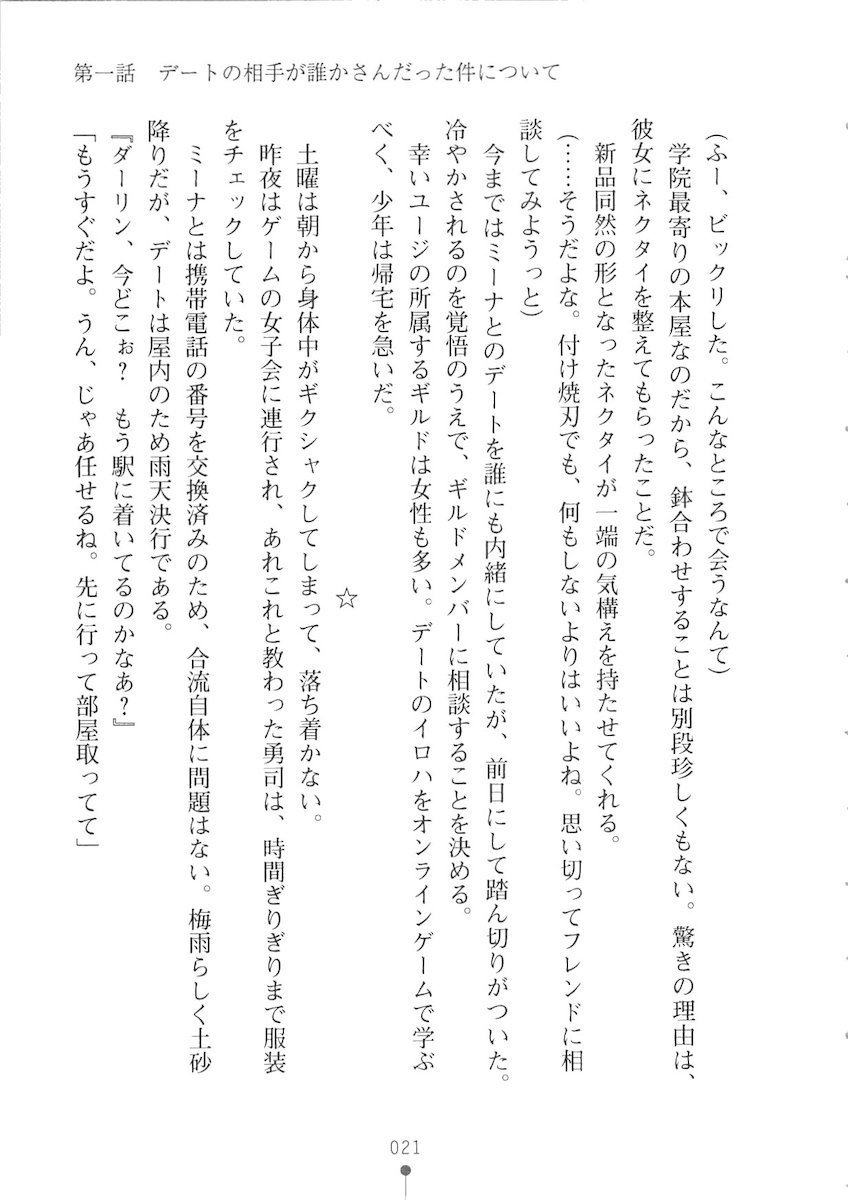 第一話　デートの相手が誰かさんだった件について
(ふー、ビックリした。こんなところで会うなんて)
　学院最寄りの本屋なのだから、鉢合わせすることは別段珍しくもない。驚きの理由は、
彼女にネクタイを整えてもらったことだ。
　新品同然の形となったネクタイが一端の気構えを持たせてくれる。
(……そうだよな。付け焼刃でも、何もしないよりはいいよね。思い切ってフレンドに相
談してみようっと)
　今まではミーナとのデートを誰にも内緒にしていたが、前日にして踏ん切りがついた。
冷やかされるのを覚悟のうえで、ギルドメンバーに相談することを決める。
　幸いユージの所属するギルドは女性も多い。デートのイロハをオンラインゲームで学ぶ
べく、少年は帰宅を急いだ。
☆
　土曜は朝から身体中がギクシャクしてしまって、落ち着かない。
　昨夜はゲームの女子会に連行され、あれこれと教わった勇司は、時間ぎりぎりまで服装
をチェックしていた。
　ミーナとは携帯電話の番号を交換済みのため、合流自体に問題はない。梅雨らしく土砂
降りだが、デートは屋内のため雨天決行である。
『ダーリン、今どこぉ？　もう駅に着いてるのかなあ？』
「もうすぐだよ。うん、じゃあ任せるね。先に行って部屋取ってて」
021